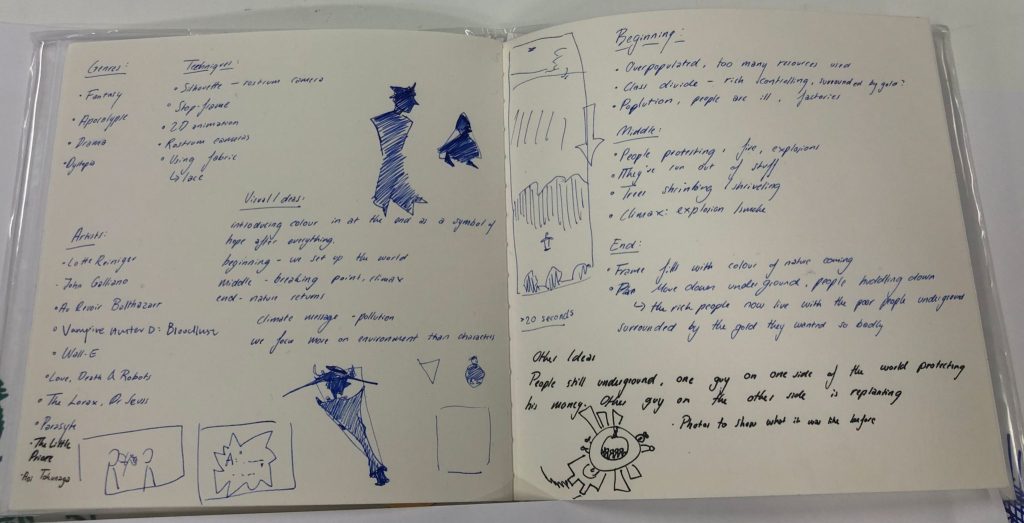 Genres:
· Fantasy
· Apocalypse
· Drama
· Dystopa
Techniques:
· Silhouette – rostrum camera
· Stop-frame
· 2D animation
· Rostrum cameras
· Using fabric
↳ lace
Visual Ideas:
introducing colour in at the end as a symbol of
hope after everything.
beginning - we set up the world
middle - breaking point, climax
end - nature returns
climate message - pollution
we focus more on environment than characters
Artists:
· Lotte Reiniger
· John Galliano
· Au Revoir Balthazarr
· Vampire Hunter D: Bloodlust
· Wall-E
· Love, Death & Robots
· The Lorax, Dr Seuss
· Parasyte
· The Little
Prince
>20 seconds
Beginning:
· Overpopulated, too many resources used
· Class divide – rich controlling, surrounded by gold?
· Poplution, people are ill, factories
Middle:
· People protesting, fire, explosions
· They've run out of stuff
· Trees shrinking / shriveling
· Climax: explosion / smoke
End:
· Frame fills with colour of nature coming
· Pan move down underground, people huddling down
↳ the rich people now live with the poor people underground
surrounded by the gold they wanted so badly
Other Ideas
People still underground, one guy on one side of the world protecting
his money. Other guy on the other side is replanting
· Photos to show what it was like before